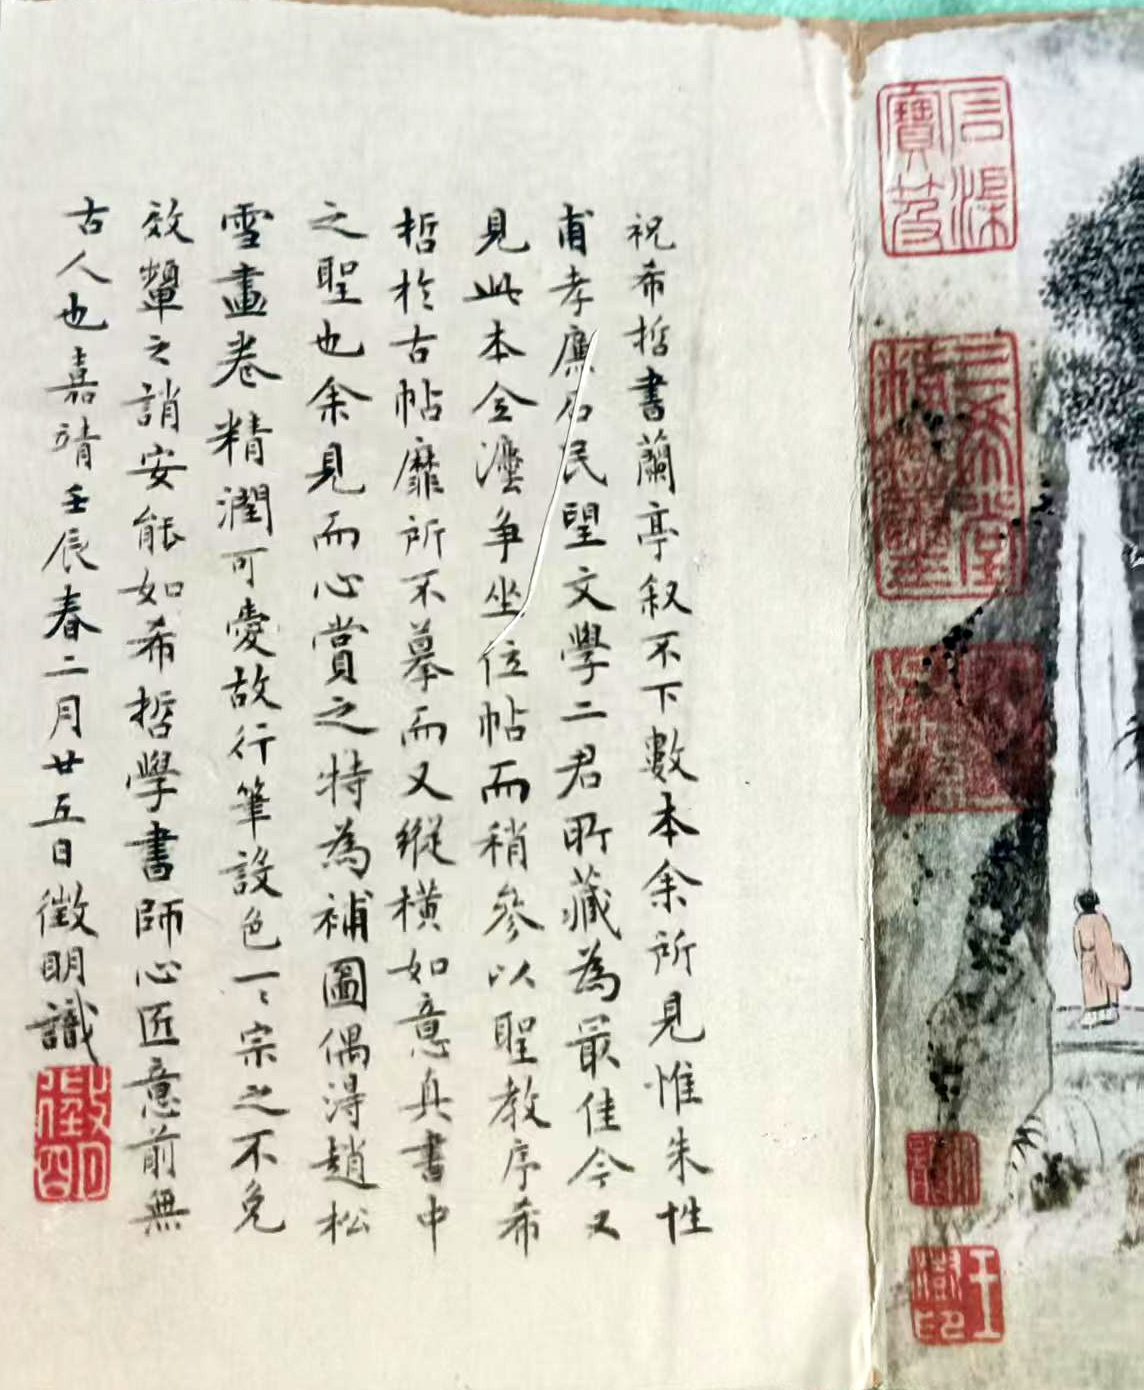 祝希哲書蘭亭叙不下數本余所見惟朱性
甫孝廉石民望文學二君所藏為最佳今又
見此本全灋争坐位帖而稍參以聖教序希
哲於古帖靡所不摹而又縱横如意真書中
之聖也余見而心賞之特為補圖偶得趙松
雪畫卷精潤可愛故行筆設色一一宗之不免
效顰之誚安能如希哲學書師心匠意前無
古人也嘉靖壬辰春二月廿五日徵明識
徵明
石渠
寶笈
三希堂
精鑑璽